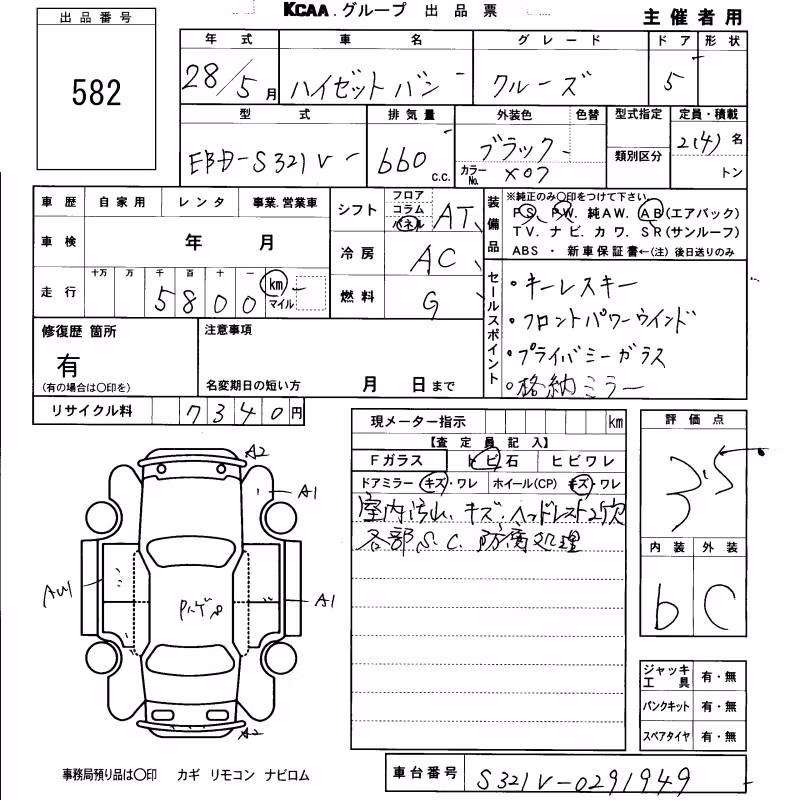 KCAA.グループ 出品票
主催者用
出品番号
582
年式 車名 グレード ドア 形状
28/5月 ハイゼットバン クルーズ 5
型式 排気量 外装色 色替 型式指定 定員・積載
EBD-S321V 660 c.c. ブラック 2(4)名
類別区分
カラーNo. X07 トン
車歴 自家用 レンタ 事業.営業車
シフト フロア コラム パネル AT
装備品
※純正のみ〇印をつけて下さい。
PS、PW、純AW、AB(エアバック)
TV、ナビ、カワ、SR(サンルーフ)
ABS ・ 新車保証書←(注) 後日送りのみ
車検 年 月
冷房 AC
走行 十万 万 千 百 十 一
5800 km マイル
燃料 G
セールスポイント
・キーレスキー
・フロントパワーウインド
・プライバシーガラス
・格納ミラー
修復歴 箇所
有
(有の場合は〇印を)
注意事項
名変期日の短い方 月 日まで
リサイクル料 7340円
現メーター指示 km
【査定員記入】
Fガラス トビ石 ヒビワレ
ドアミラー キズ・ワレ ホイール(CP) キズ・ワレ
室内汚れ、キズ、ヘッドレスト2欠
各部S.C. 防腐処理
評価点
3.5
内装 外装
b C
A2
A1
AW1
A1
A2
ジャッキ工具 有・無
パンクキット 有・無
スペアタイヤ 有・無
事務局預り品は〇印 カギ リモコン ナビロム
車台番号 S321V-0291949